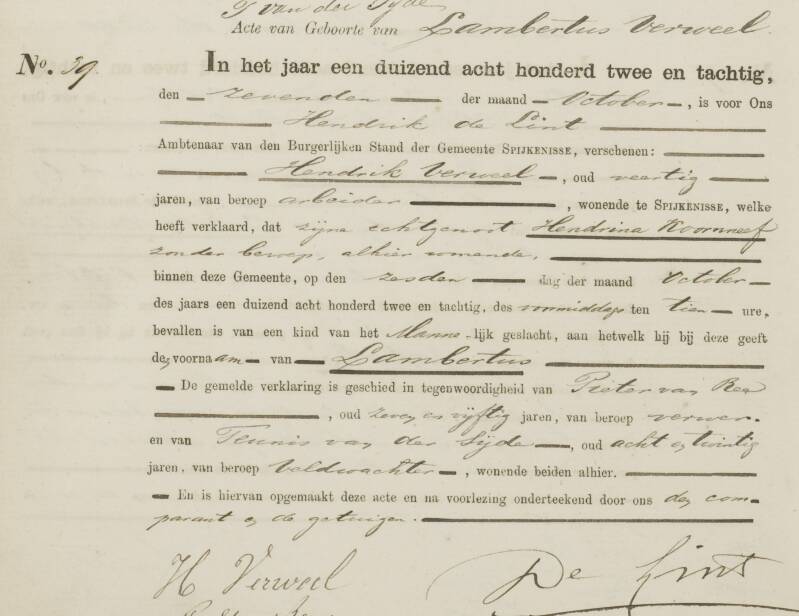 T van der Sijde
Acte van Geboorte van Lambertus Verweel.
No. 59. In het jaar een duizend acht honderd twee en tachtig,
den zevenden der maand October, is voor Ons
Hendrik de Lint
Ambtenaar van den Burgerlijken Stand der Gemeente SPIJKENISSE, verschenen:
Hendrik Verweel, oud veertig
jaren, van beroep arbeider, wonende te SPIJKENISSE, welke
heeft verklaard, dat zijne echtgenoot Hendrina Koornneef
zonder beroep, alhier wonende,
binnen deze Gemeente, op den zesden dag der maand October
des jaars een duizend acht honderd twee en tachtig, des voormiddags ten tien ure,
bevallen is van een kind van het Manne-lijk geslacht, aan hetwelk hij bij deze geeft
den voornaam van Lambertus
De gemelde verklaring is geschied in tegenwoordigheid van Pieter van Ree
, oud zeven en vijftig jaren, van beroep verwer.
en van Teunis van der Sijde, oud acht en twintig
jaren, van beroep Veldwachter, wonende beiden alhier.
En is hiervan opgemaakt deze acte en na voorlezing onderteekend door ons den com-
parant en de getuigen.
H Verweel De Lint